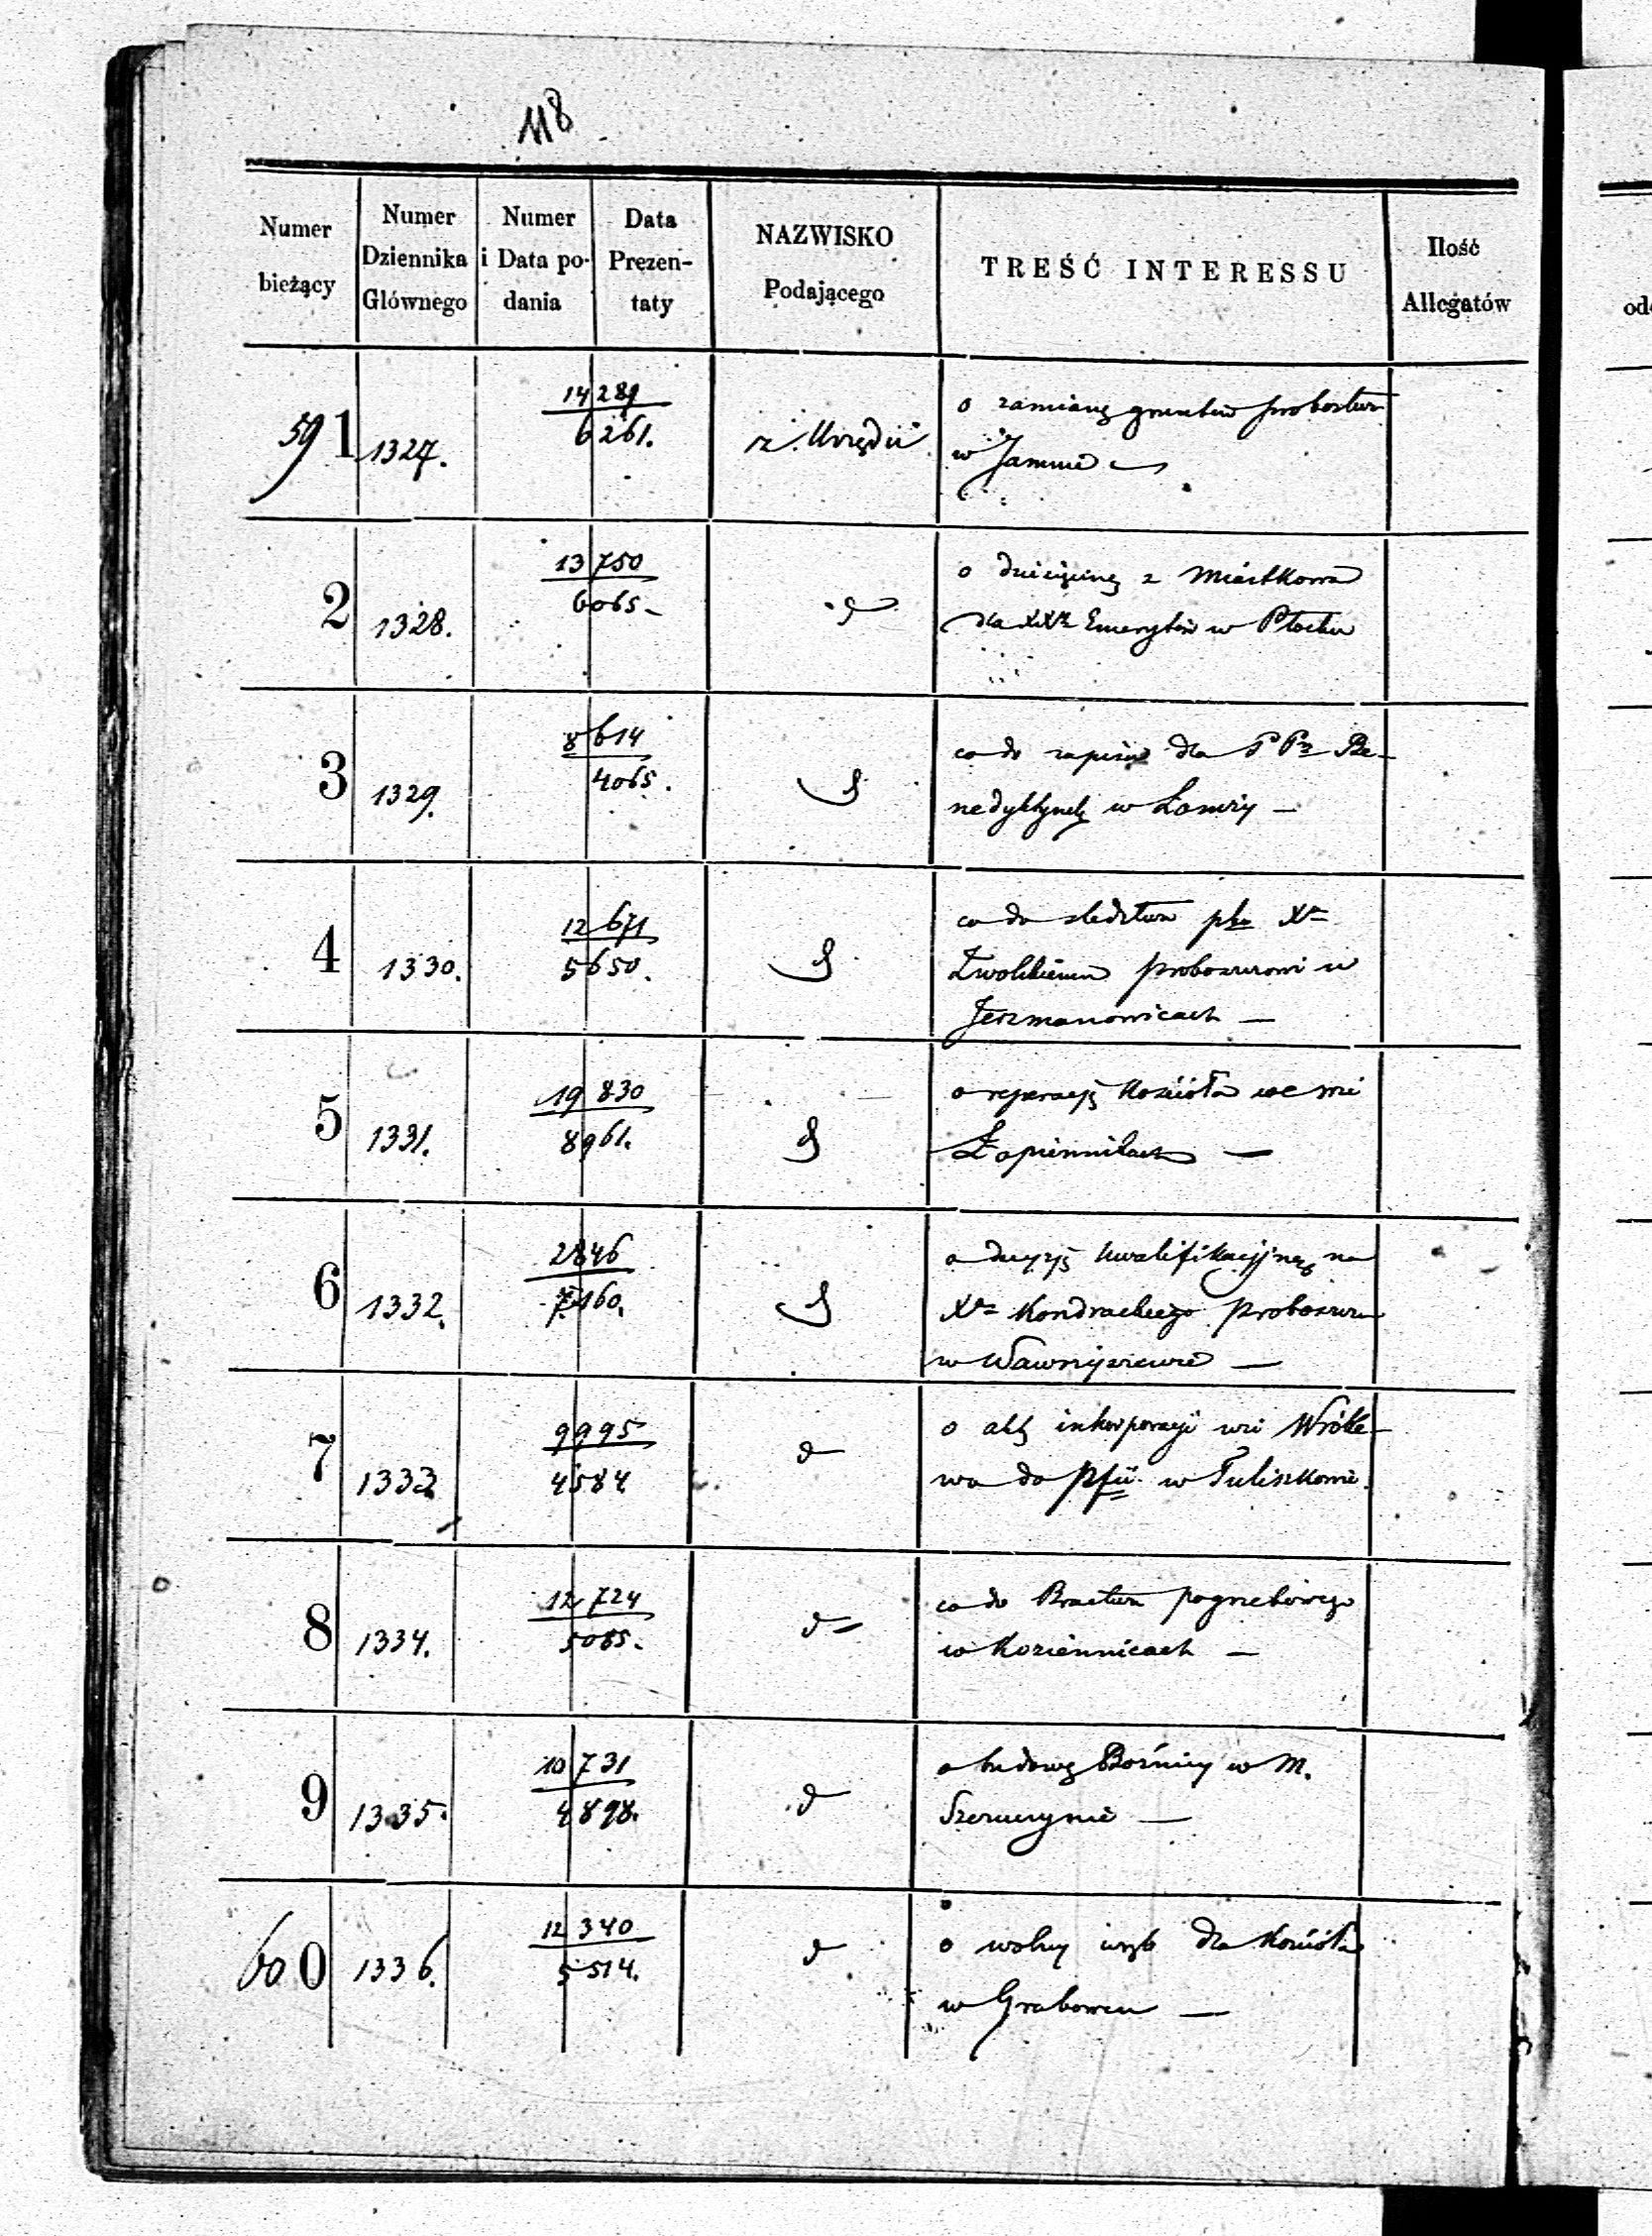 118
Numer bieżący
Numer Dziennika Głównego
Numer i Data podania
Data Prezentaty
NAZWISKO Podającego
TREŚĆ INTERESSU
Ilość Allegatów
591 1327. 14289 6261. z Urzędu o zamianę gruntów probostwa
w Jamnie
2 1328. 13750 6065 o dziesięcinę z Miastkowa
dla XXży Emerytów w Płocku
3 1329. 8614 4065. co do zapisu dla PP. Be-
nedyktynek w Łomży —
4 1330. 12671 5650. co do śledztwa pko Xu
proboszczowi w
Jerzmanowicach —
5 1331. 19830 8961. o reperacyę Kościoła we wsi
Łopiennikach —
6 1332. 2846 7160. o decyzyę kwalifikacyjną na
Xa Kondrackiego proboszcza
w Wawrzyszewie —
7 1333 9995 4584 o akt inkorporacyi wsi Wróble-
wa do pfii w Tuliszkowie.
8 1334. 12724 5085. co do Bractwa pogrzebowego
w Koziennicach —
9 1335. 10731 4898. d o budowę Bożnicy w M.
Szczuczynie —
600 1336. 12340 5514. d o wolny wrąb dla Kościoła
w Grabowcu —
od